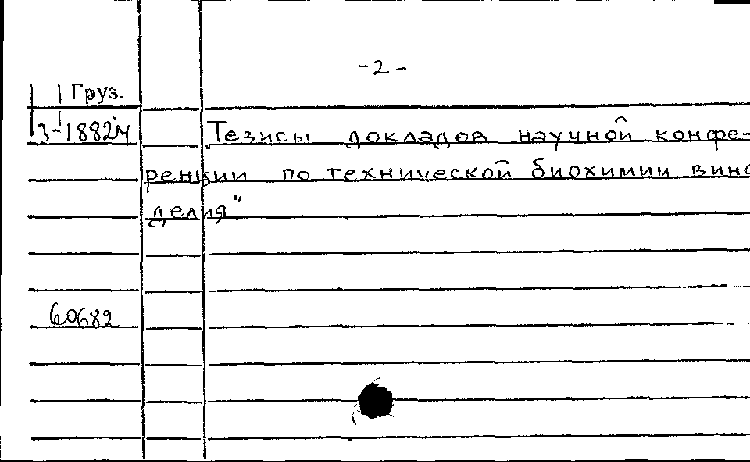 -2-
Груз.
3-1882м Тезисы докладов научной конфе-
ренции по технической биохимии вино
делия"
60682